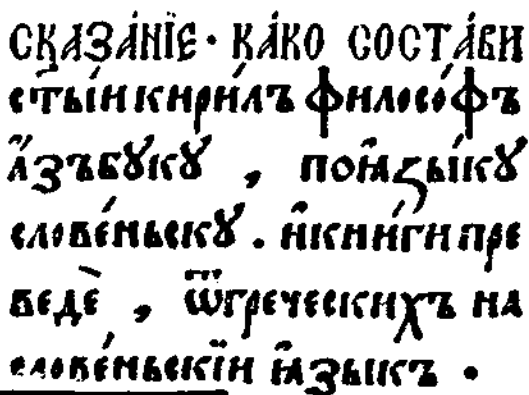 СКАЗА́НЇЕ · КА́КО СОСТА́ВИ
ст҃ы́и кири́лъ филосо́фъ
а҆́зъбꙋкꙋ , поꙗ҆зы́кꙋ
слове́ньскꙋ . и҆кни́ги пре
ведѐ , ѿгреческихъ на
слове́ньскїи ꙗ҆зыкъ .